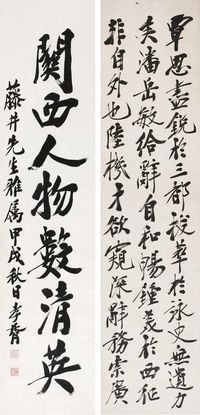 覃思盡銳於三都拔萃於詠史無遺力
矣潘岳敏給辭自和暢鍾美於西征
非自外也陸機才欲窺深辭務索廣
關西人物數清英
藤井先生雅屬甲戌秋日孝胥